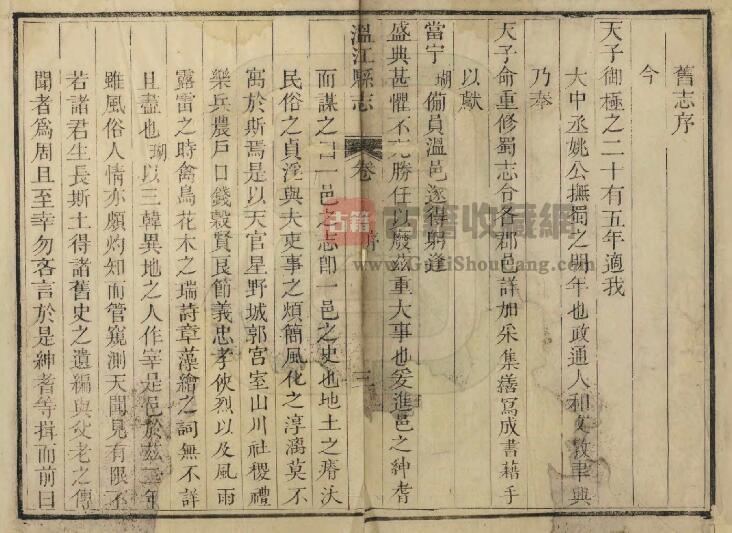 舊志序
今
天子御極之二十有五年適我
大中丞姚公撫蜀之明年也政通人和文教聿興
乃奉
天子命重修蜀志令各郡邑詳加采集繕寫成書藉手
以獻
當宁瑚備員溫邑遂得躬逢
盛典甚懼不克勝任以廢茲重大事也爰進邑之紳耆
溫江縣志 卷 序 三
而謀之曰一邑之志卽一邑之史也地土之瘠沃
民俗之貞淫與夫吏事之煩簡風化之淳漓莫不
寓於斯焉是以天官星野城郭宮室山川社稷禮
樂兵農戶口錢穀賢良節義忠孝俠烈以及風雨
露雷之時禽鳥花木之瑞詩章藻繪之詞無不詳
且盡也瑚以三韓異地之人作宰是邑於茲三年
雖風俗人情亦頗灼知而管窺測天聞見有限不
若諸君生長斯土得諸舊史之遺編與父老之傳
聞者爲周且至幸勿吝言於是紳耆等揖而前曰
古籍
古籍收藏網
www.GujiShouCang.com